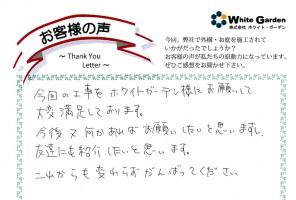 お客様の声
～ Thank You
Letter ～
White Garden
株式会社 ホワイト・ガーデン
今回、弊社で外構・お庭を施工されて
いかがだったでしょうか？
お客様の声が私たちの原動力になっています。
ぜひご感想をお聞かせ下さい。
今回の工事をホワイトガーデン様にお願いして
大変満足しております。
今後又何かあればお願いしたいと思いますし、
友達にも紹介したいと思います。
これからも変わらずがんばってください